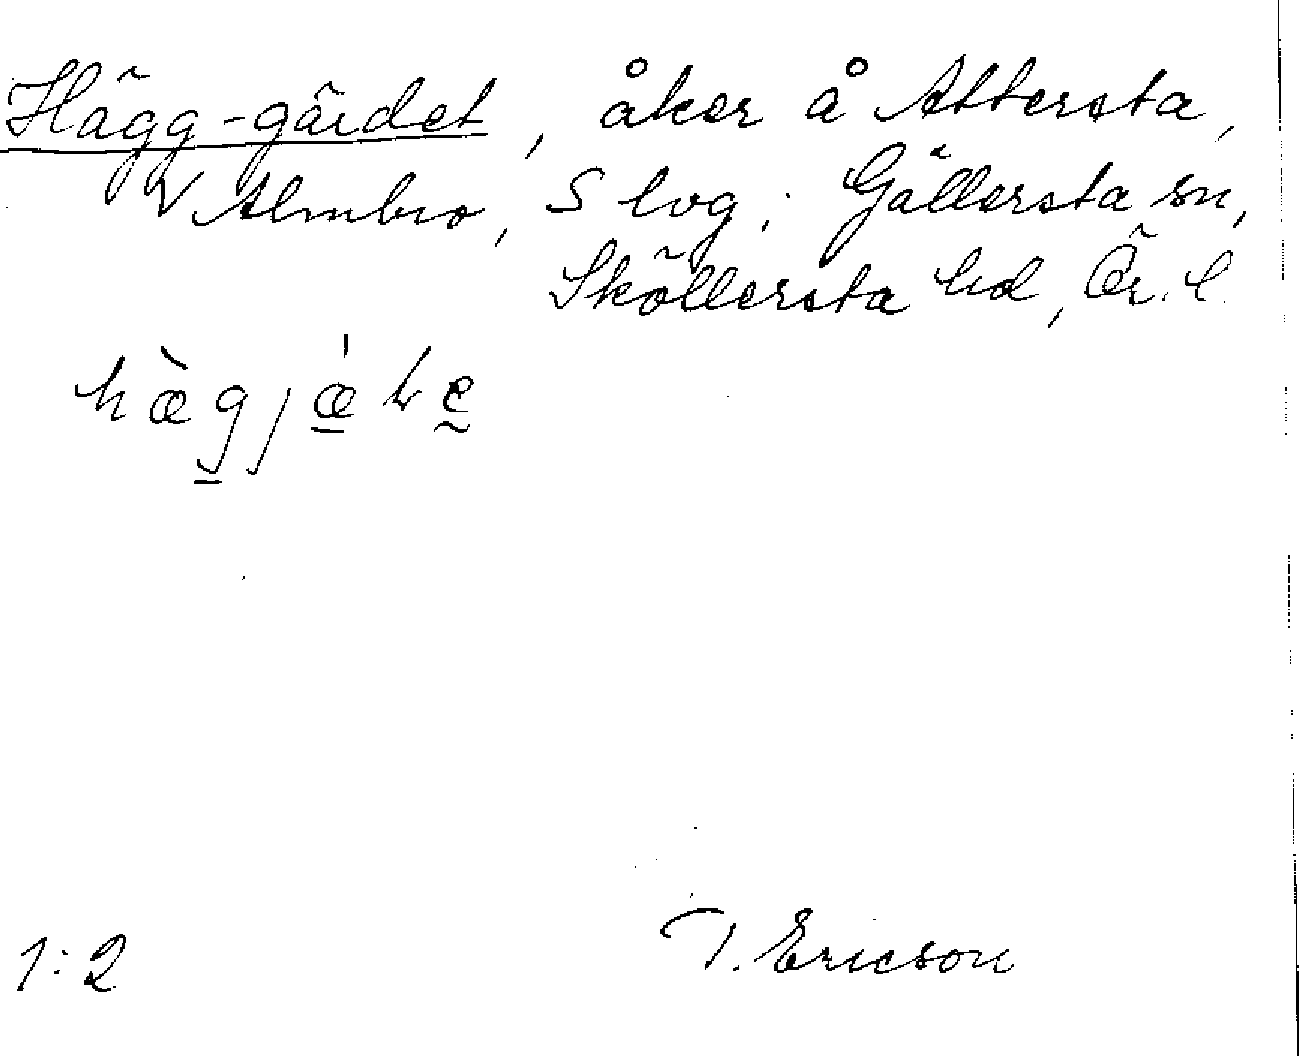 Hägg-gärdet, åker å Attersta,
V Almbro, S lvg; Gällersta sn,
Sköllersta hd, Ör. l.
1:2
T. Ericson